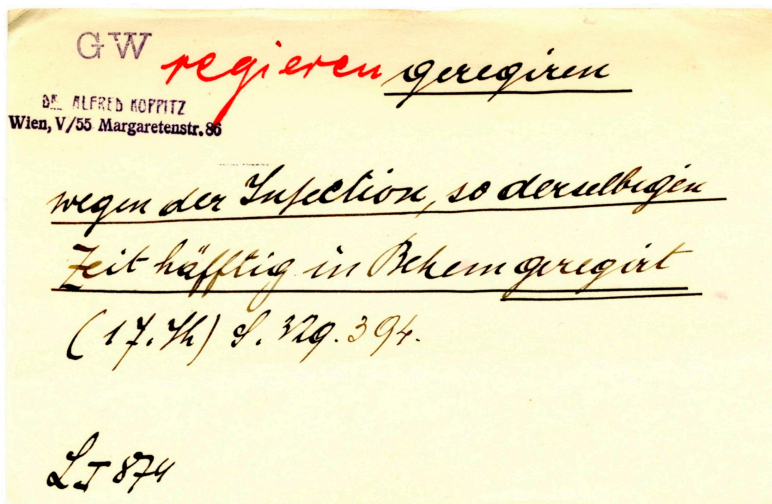 GW regieren geregiren
DR. ALFRED KOPPITZ
Wien, V/55 Margaretenstr. 86
wegen der Infection, so derselbigen
Zeit häfftig in Behem geregirt
(17. Jh) S. 329. 394.
L I 874